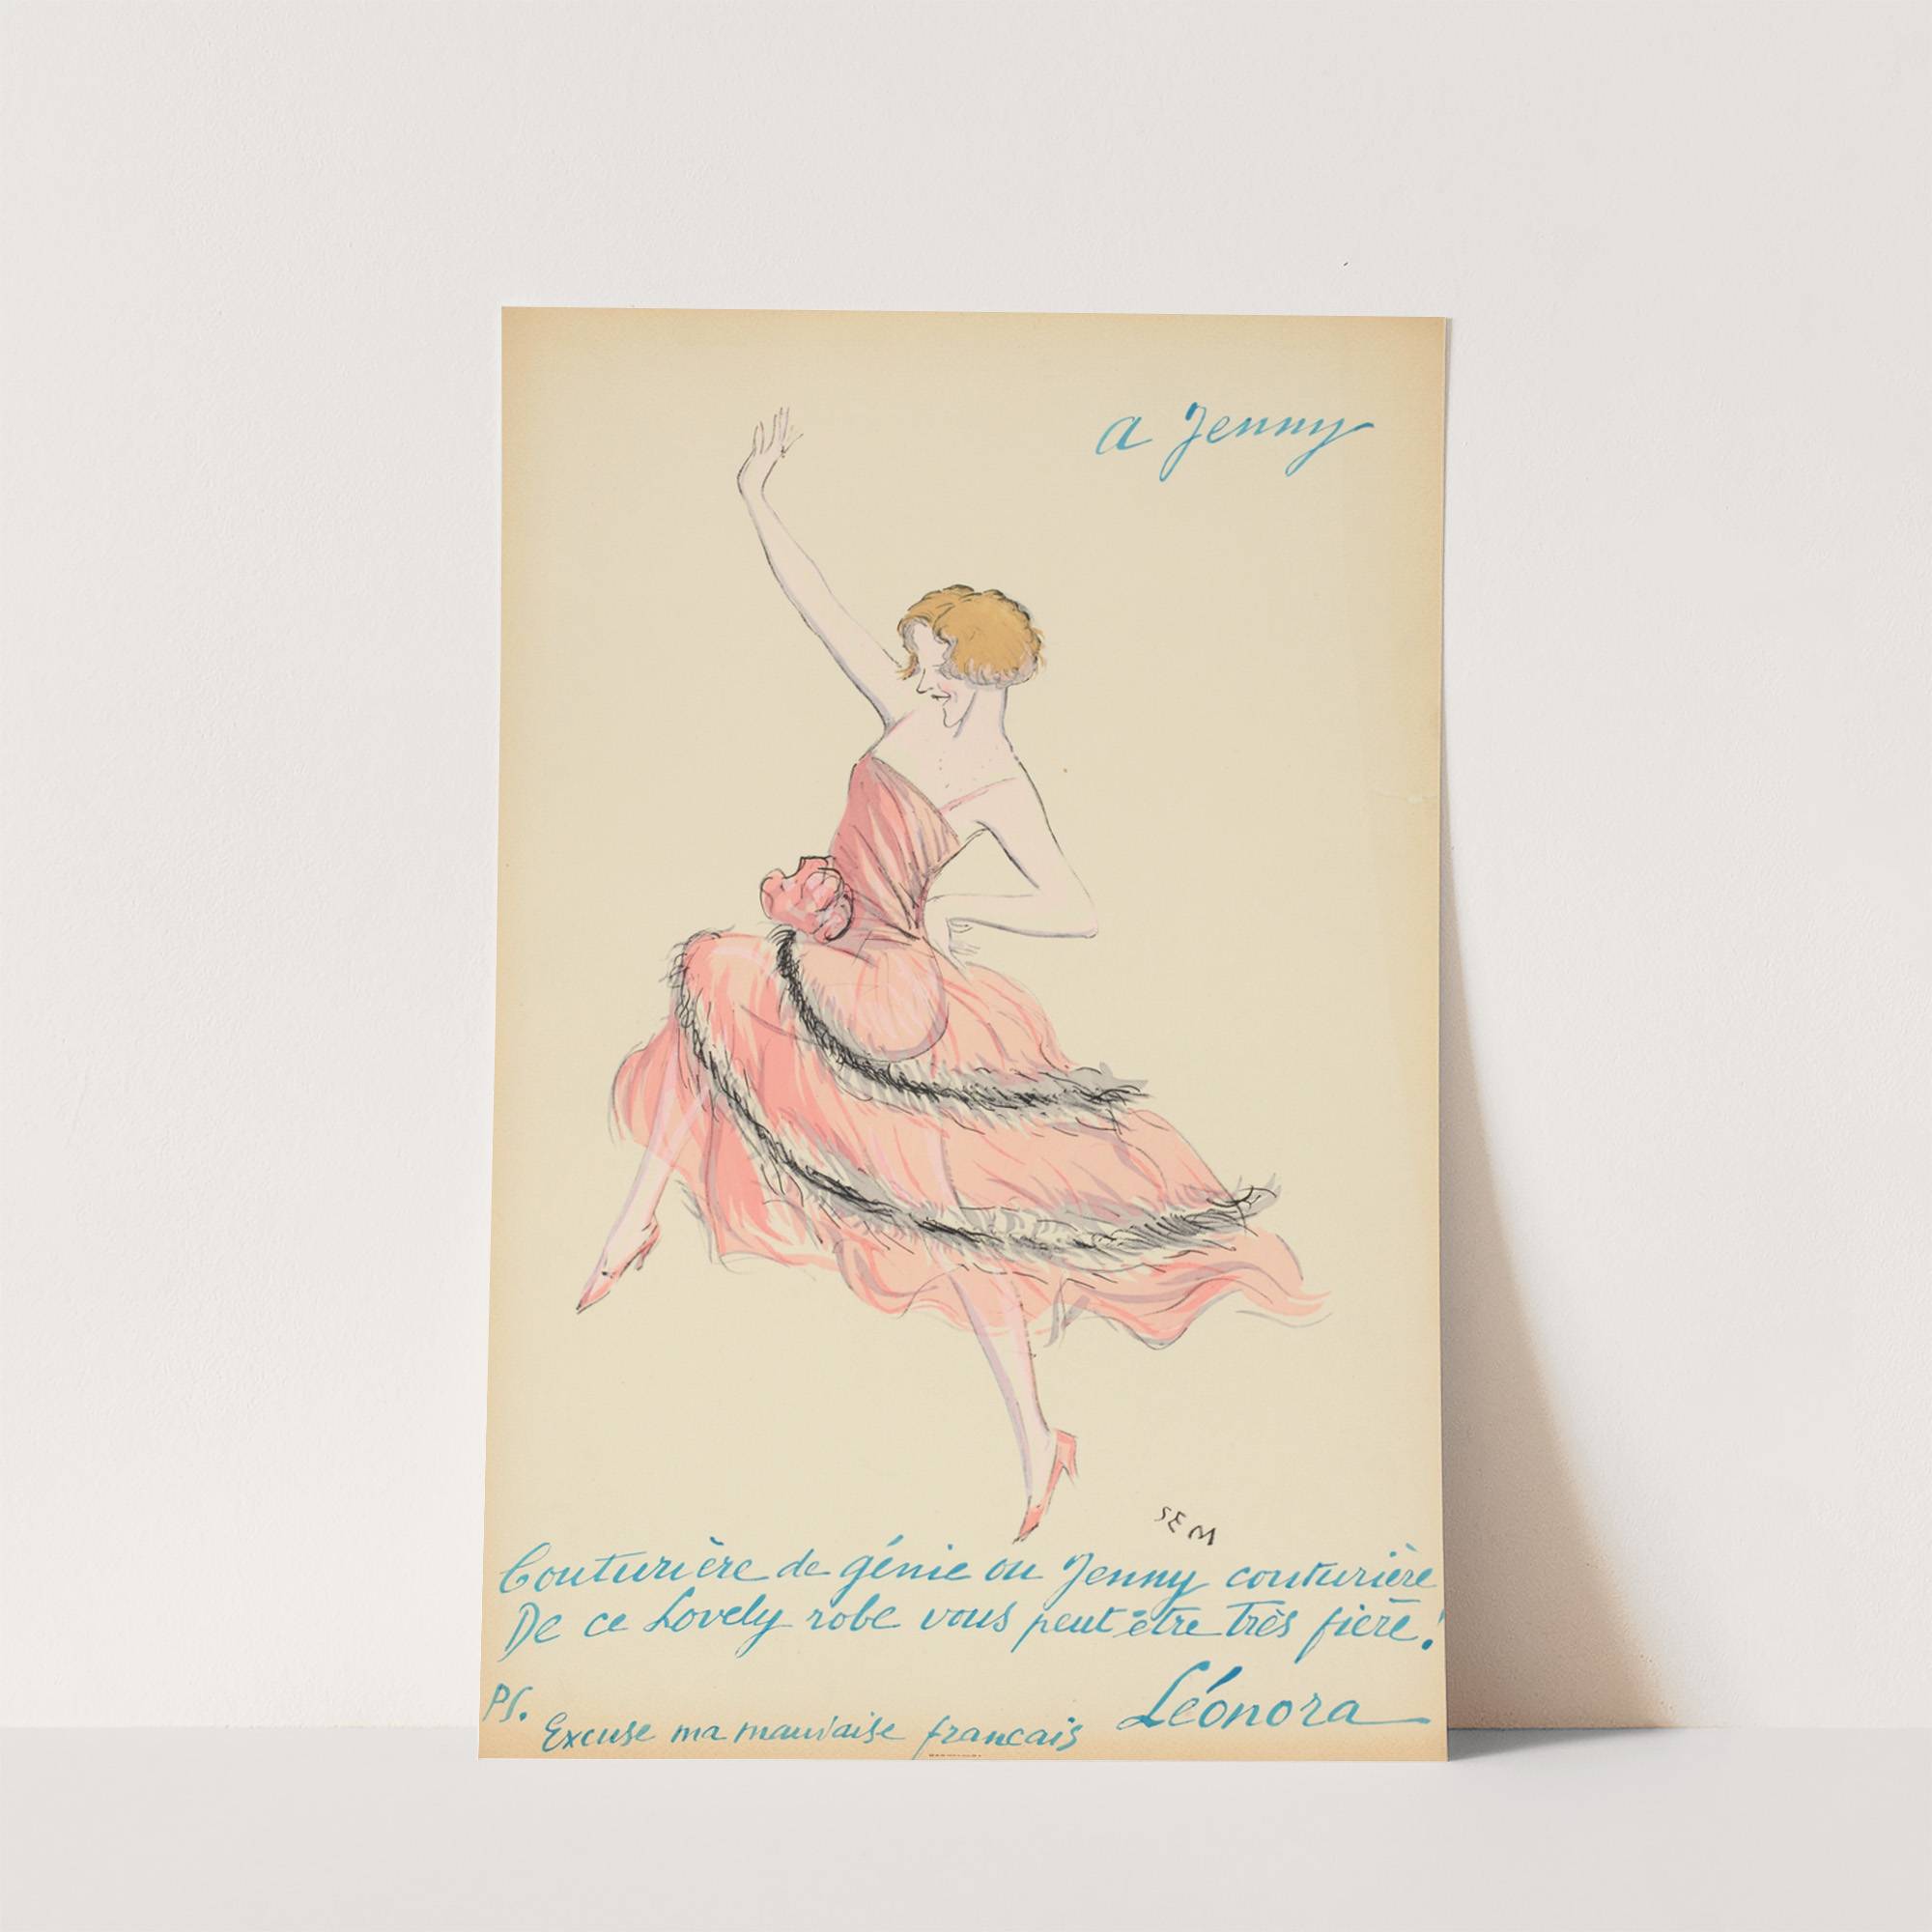 a Jenny
SEM
Couturière de génie ou Jenny couturière
De ce Lovely robe vous peut être très fière!
PS.
Excuse ma mauvaise francais
Léonora